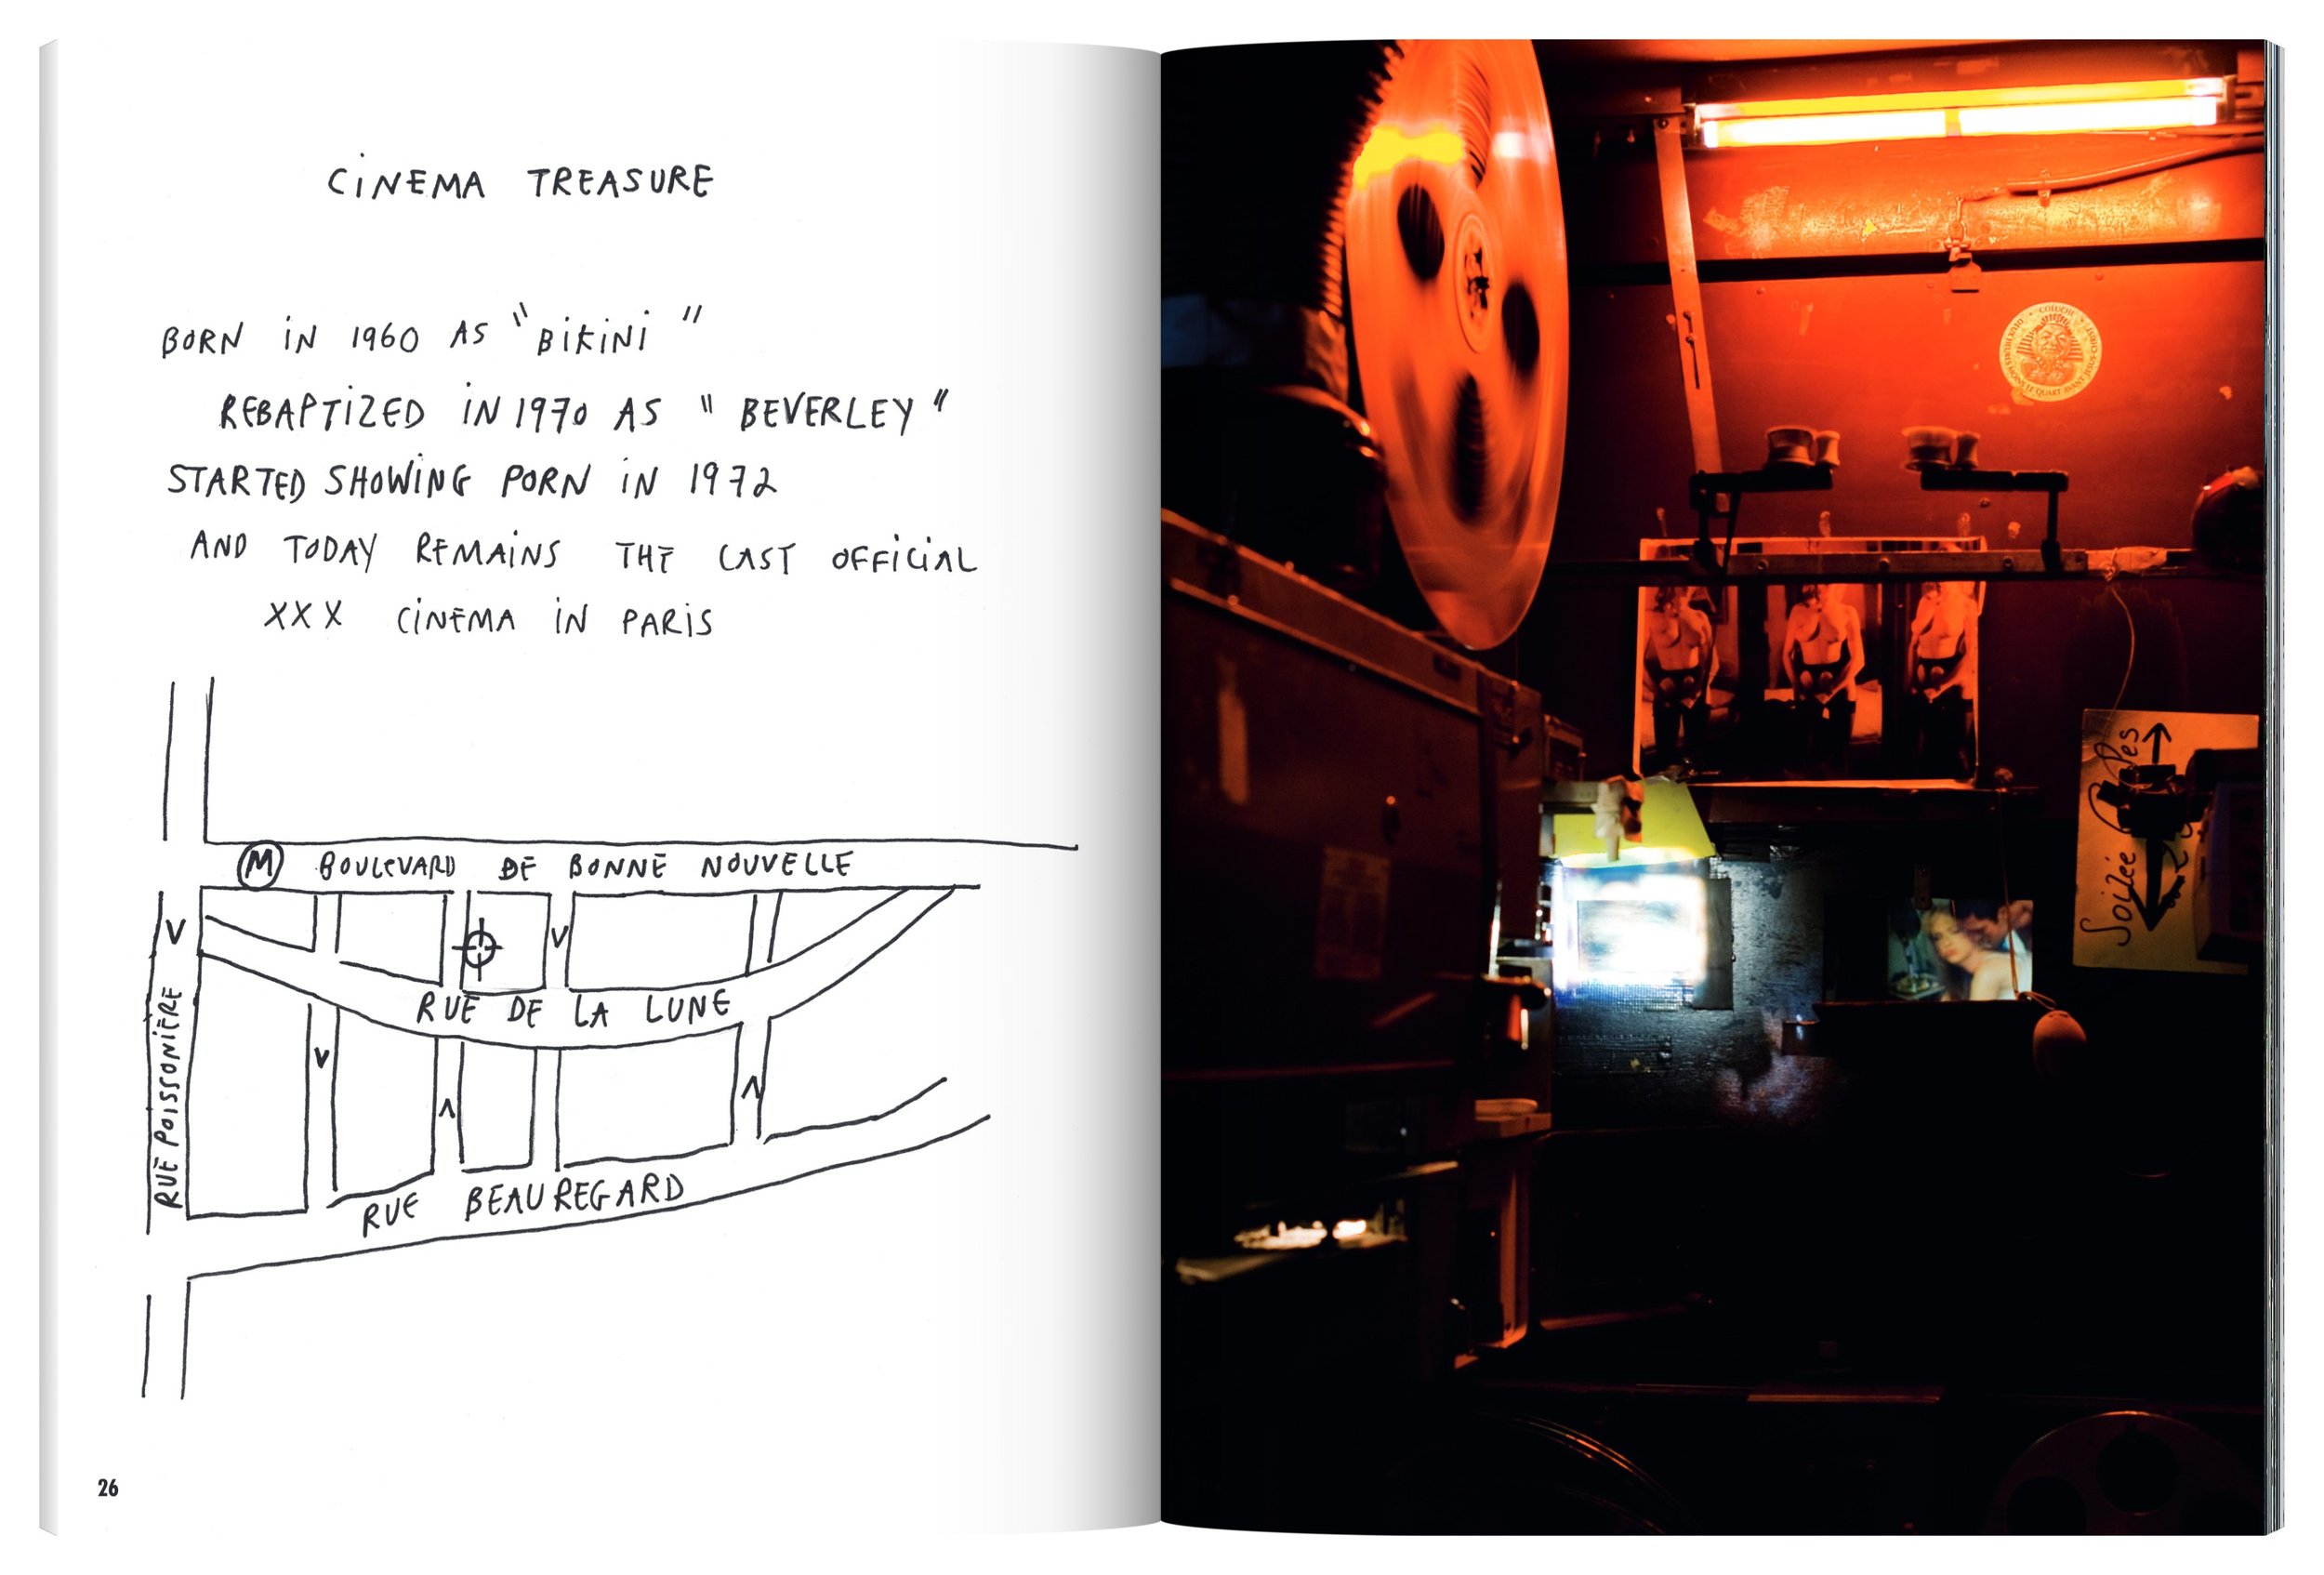 CINEMA TREASURE
BORN IN 1960 AS "BIKINI"
REBAPTIZED IN 1970 AS "BEVERLEY"
STARTED SHOWING PORN IN 1972
AND TODAY REMAINS THE LAST OFFICIAL
XXX CINEMA IN PARIS
M BOULEVARD DE BONNE NOUVELLE
RUE DE LA LUNE
RUE POISSONIÈRE
RUE BEAUREGARD
26
COLUCHE
Soirée